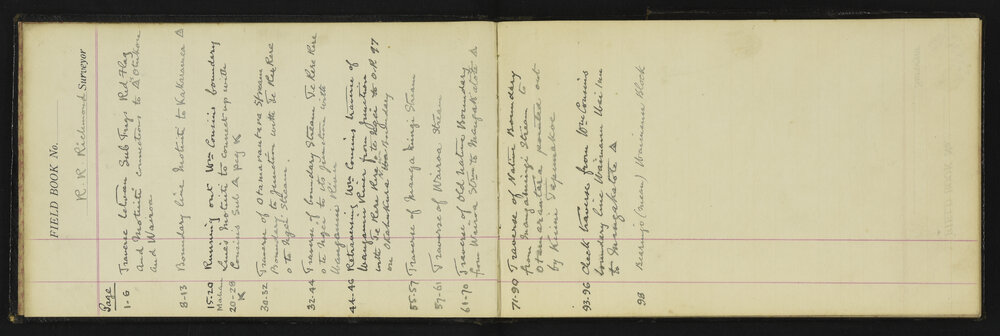 FIELD BOOK No.
R. R. Richmond Surveyor
Page
1-6 Traverse between Sub Trigs Red Flag
and Motuiti connections to Δ
and Wairoa
8-13 Boundary line Motuiti to Kakaramea Δ
15-20 Running out Wm Cousins boundary
Line's Motuiti to connect up with
20-28 Cousins Sub Δ peg K
K
30-32 Traverse of Otamaraurara Stream
Boundary to junction with Te Reke Rere
o te Ngei Stream.
32-44 Traverse of boundary Stream Te Reke Rere
o te Ngei to its junction with
Wanganui River
44-46 Retraversing Wm Cousins traverse of
Wanganui River from junction
with Te Reke Rere o te Ngei to O.P. 97
on Boundary
55-57 Traverse of Manga Kingi Stream
57-61 Traverse of Wairoa Stream
61-70 Traverse of Old Native Boundary
from Wairoa Strm to Mangakatote Δ
71-90 Traverse of Native Boundary
from Mangamingi Stream to
pointed out
by
93-96 Check traverse from Wm Cousins
boundary line
to Mangakatote Δ
98 Bearings (Mean) Block